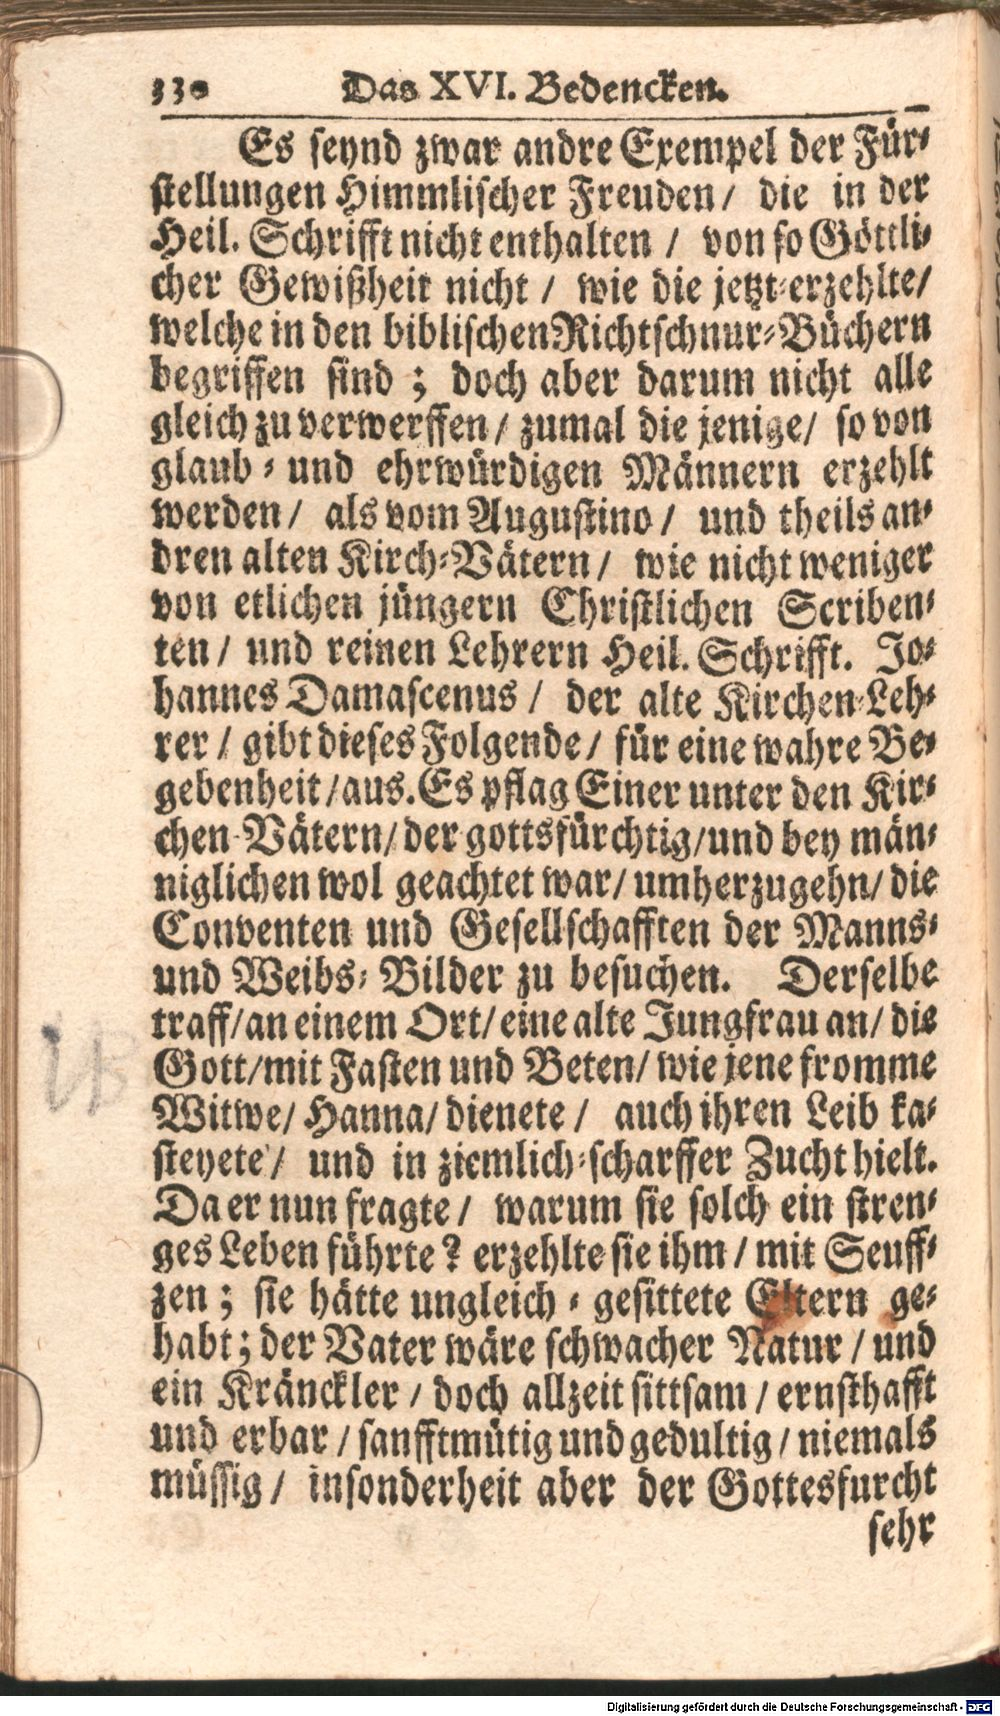 330 Das XVI. Bedencken.
Es seynd zwar andre Exempel der Für-
stellungen Himmlischer Freuden / die in der
Heil. Schrifft nicht enthalten / von so Göttli-
cher Gewißheit nicht / wie die jetzt-erzehlte/
welche in den biblischen Richtschnur-Büchern
begriffen sind ; doch aber darum nicht alle
gleich zu verwerffen / zumal die jenige/ so von
glaub - und ehrwürdigen Männern erzehlt
werden / als vom Augustino / und theils an-
dren alten Kirch-Vätern / wie nicht weniger
von etlichen jüngern Christlichen Scriben-
ten / und reinen Lehrern Heil. Schrifft. Jo-
hannes Damascenus / der alte Kirchen-Leh-
rer / gibt dieses Folgende / für eine wahre Be-
gebenheit / aus. Es pflag Einer unter den Kir-
chen-Vätern/ der gottsfürchtig/ und bey män-
niglichen wol geachtet war/ umherzugehn/ die
Conventen und Gesellschafften der Manns-
und Weibs-Bilder zu besuchen. Derselbe
traff/ an einem Ort/ eine alte Jungfrau an/ die
Gott/ mit Fasten und Beten/ wie jene fromme
Witwe/ Hanna/ dienete / auch ihren Leib ka-
steyete / und in ziemlich-scharffer Zucht hielt.
Da er nun fragte / warum sie solch ein stren-
ges Leben führte? erzehlte sie ihm / mit Seuff-
zen ; sie hätte ungleich - gesittete Eltern ge-
habt ; der Vater wäre schwacher Natur / und
ein Kränckler / doch allzeit sittsam / ernsthafft
und erbar / sanfftmütig und gedultig / niemals
müssig / insonderheit aber der Gottesfurcht
sehr
Digitalisierung gefördert durch die Deutsche Forschungsgemeinschaft - DFG